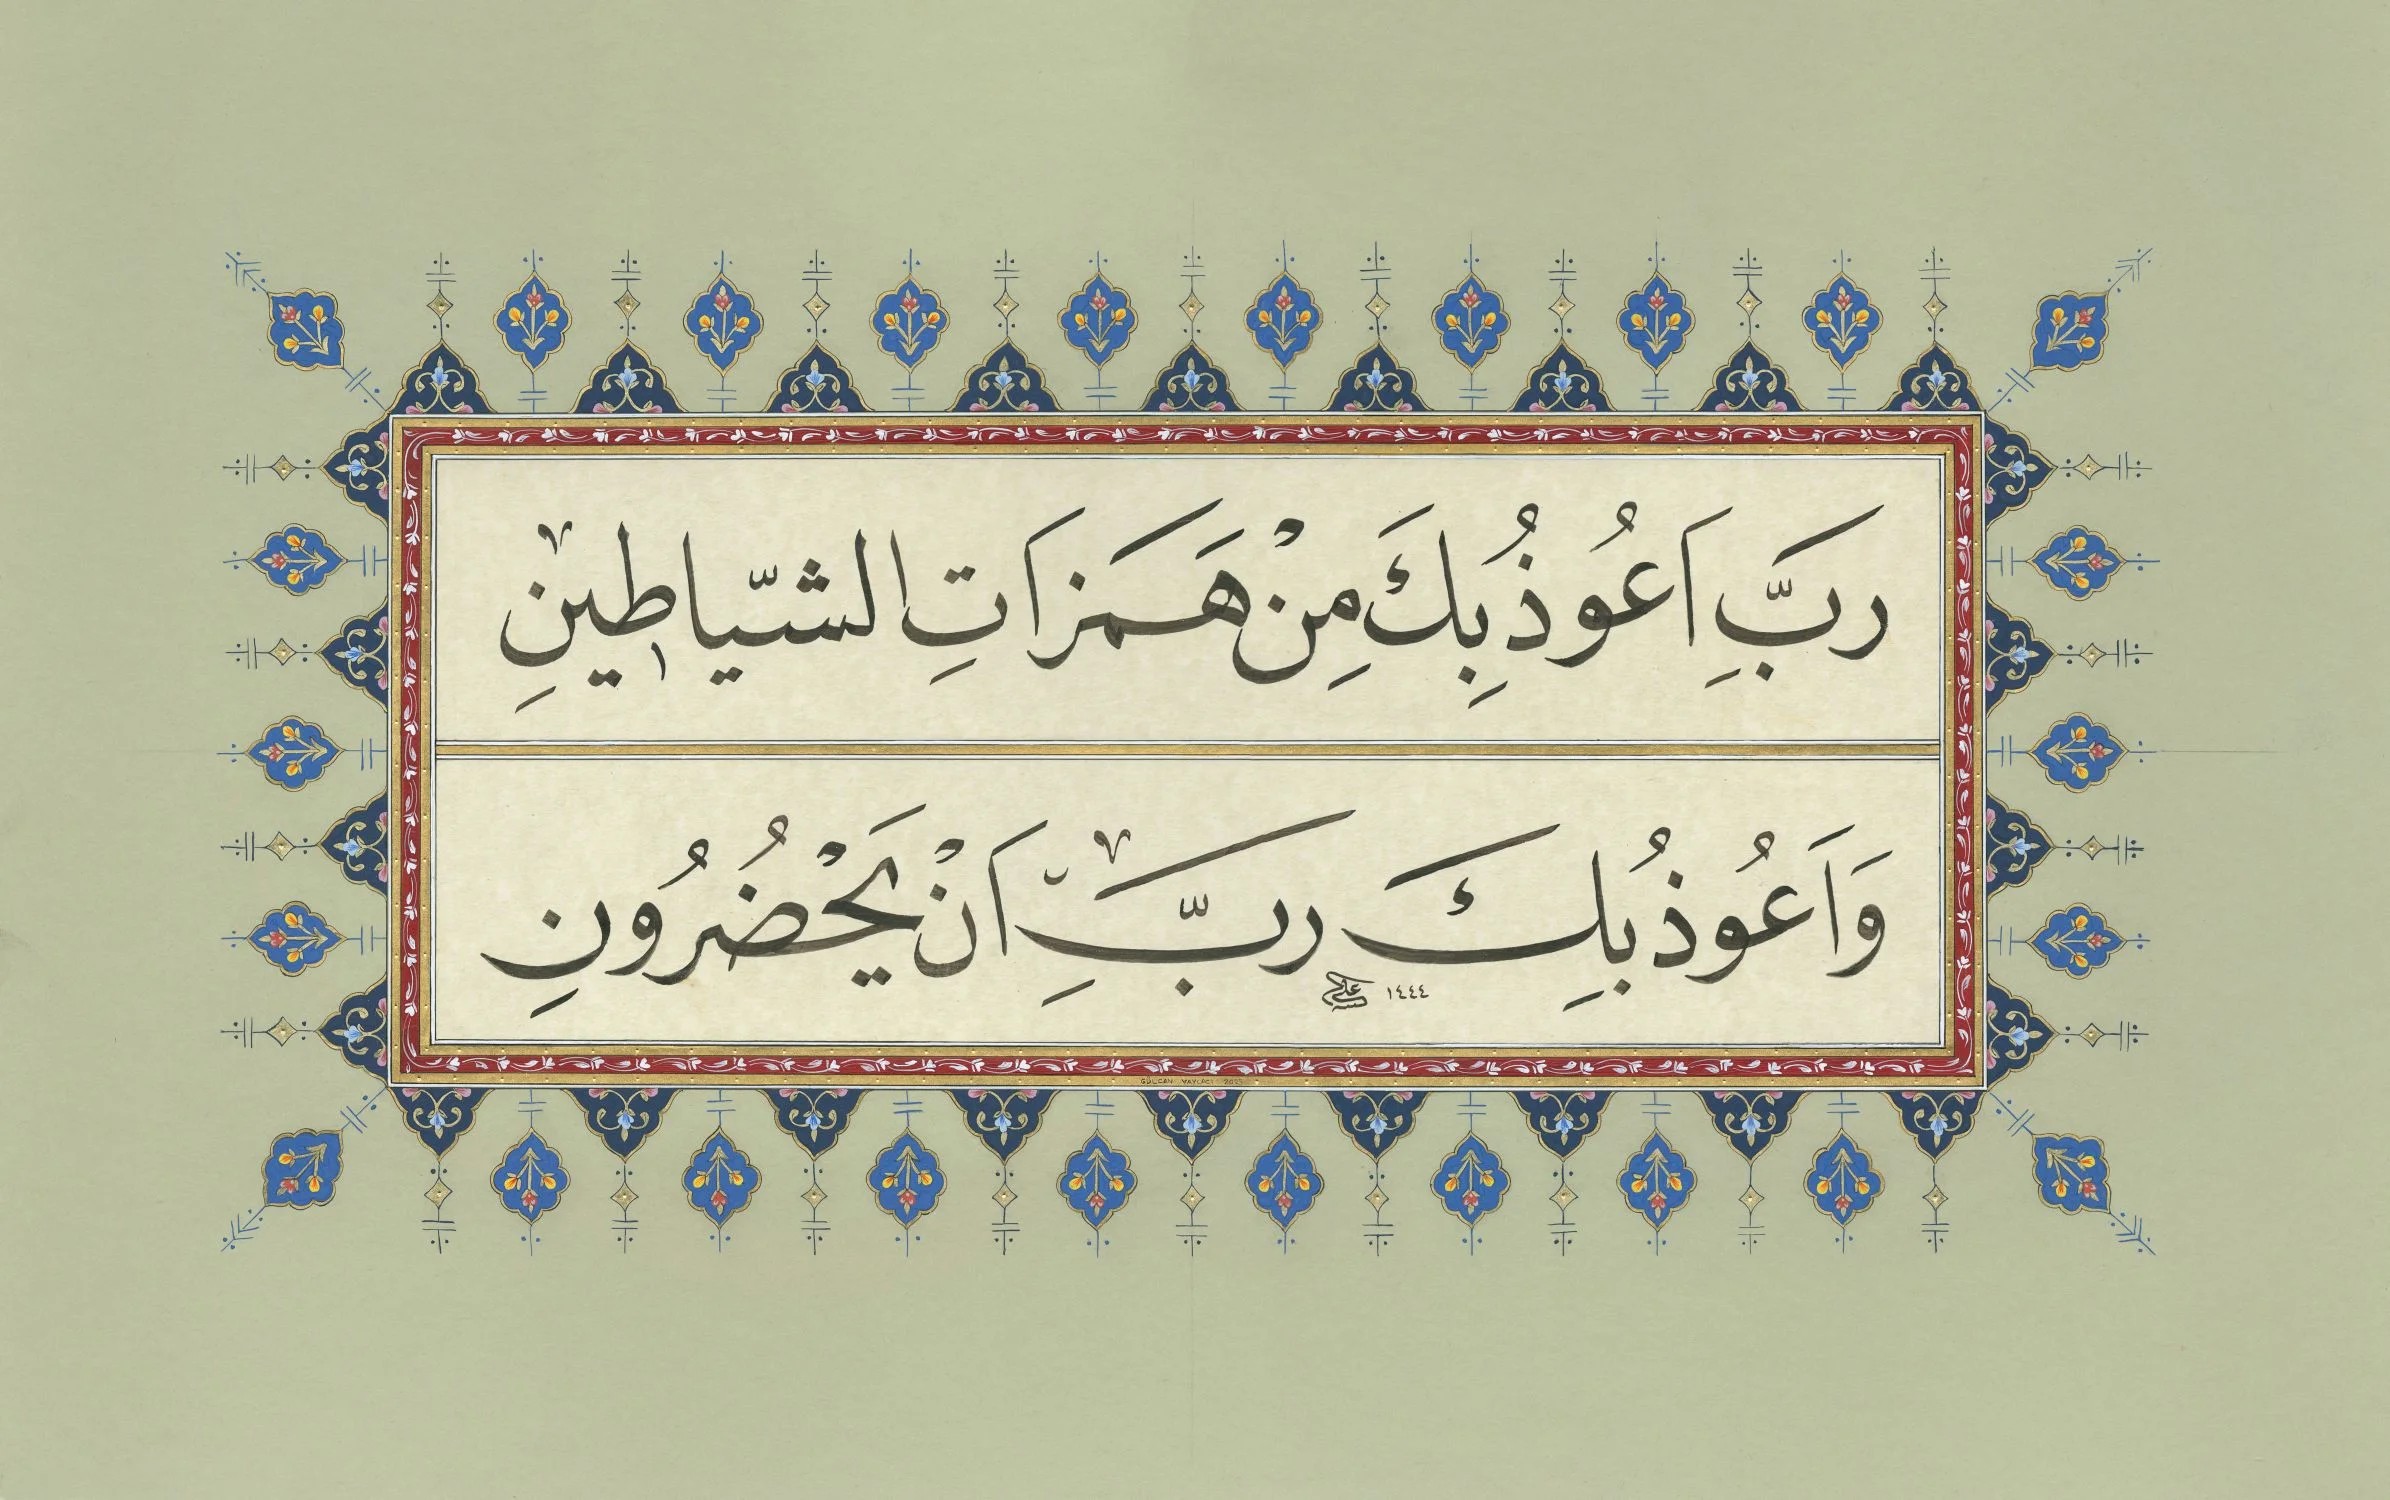 رَبِّ اَعُوذُ بِكَ مِنْ هَمَزَاتِ الشَّيَاطٖينِ
وَاَعُوذُ بِكَ رَبِّ اَنْ يَحْضُرُونِ
١٤٤٤
GÜLCAN YAYLACI 2023